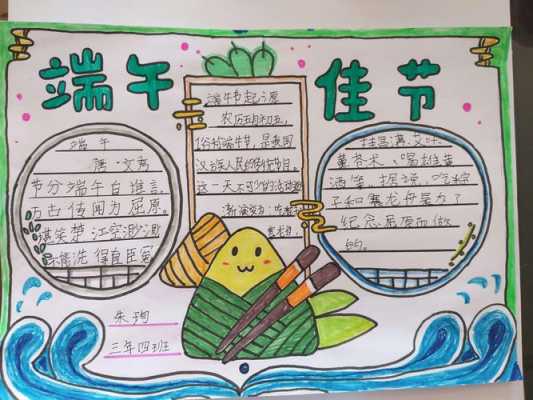 端午佳节
端午
唐·文秀
节分端午自谁言,
万古传闻为屈原。
堪笑楚江空渺渺,
不能洗得直臣冤
端午节起源
农历五月初五,
俗称端午节,是我国
汉族人民的传统节日。
这一天不可少的活动逐
渐演变为:吃粽
赛龙舟,
挂菖蒲、艾叶
薰苍术、喝雄黄
酒等。据说,吃粽
子和赛龙舟是为了
纪念屈原而做
的。
朱珣
三年四班